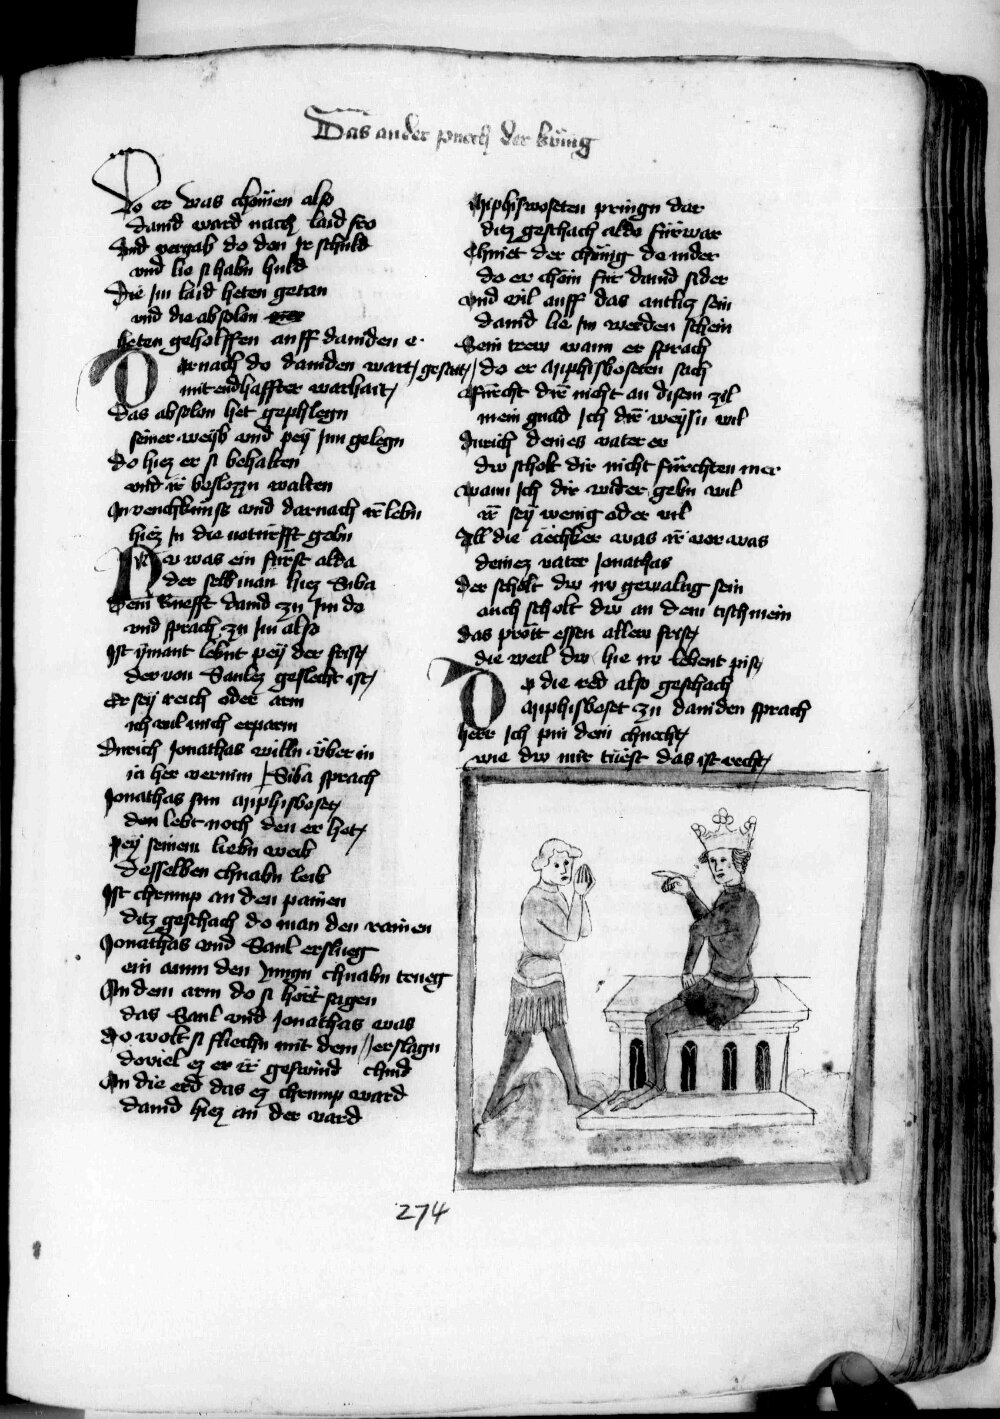 Das ander puech der künig
Do er was chömen also
dauid ward nach laid fro
Und vergab do den jr schuld
vnd lie si habn huld
Die jm laid heten getan
vnd die absolon
heten geholffen auff dauiden e
Darnach do dauiden wart gesait
mit endhaffter warhait
Das absolon het gephlegn
seiner weyb vnd pey jnn gelegn
do hiez er si behalten
vnd ir beslozzn walten
In venchknuss vnd darnach ir lebn
hiez in die noturfft gebn
Nv was ein fürst alda
der selb man hiez Siba
Dem Ruefft dauid zu jm do
vnd sprach zu jm also
Ist ymant lebnt pey der frist
der von Saulez geslecht ist
Er sey reich oder arm
ich wil mich erparm
Durich Jonathas willn vber in
ia her vernim Siba sprach
Jonathas sun Miphisboset
den lebt noch den er het
pey seinem liebn weib
desselben chnabn leib
Ist chrump an den painen
ditz geschach do man den rainen
Jonathas vnd Saul erslueg
ein amm den jungn chnabn trueg
An dem arm do si hort sagen
das Saul vnd Jonathas was
do wolt si fliechn mit dem erslagn
doviel ez er ir geswind chind
An die erd das ez chrump ward
dauid hiez an der vard
Miphisboseten pringn dar
ditz geschach aldo fürwar
Chniet der chünig de nider
do er chom für dauid sider
vnd viel auff das antlicz sein
dauid lie jm werden schein
Sein trew wann er sprach
do er Miphisboseten sach
fürcht dir nicht an disem zil
mein gnad ich dir weysn wil
durich deines vater er
dw scholt dir nicht fürchten mer
wann ich dir wider gebn wil
ir sey wenig oder vil
All die äckher was ir vor was
deinez vater Jonathas
der scholt dw nv gewaltig sein
auch scholt dw an dem tisch mein
das prött essen allew frist
die weil dw hie nv lebent pist
Do die red also geschach
Miphisboset zu dauiden sprach
herr ich pin dein chnecht
wie dw mir tüest das ist recht
274